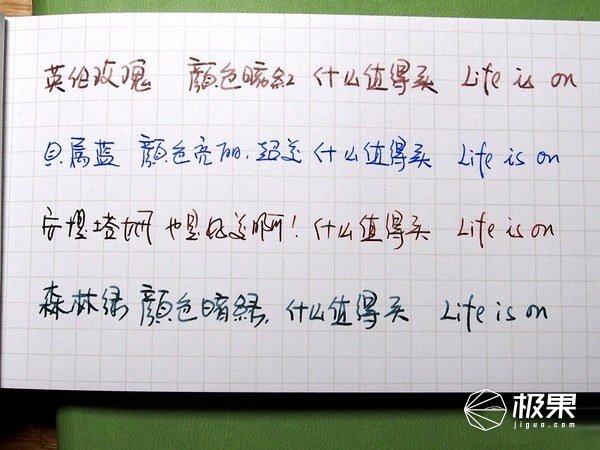 英伦玫瑰 顏色暗紅 什么值得买 Life is on
贝属蓝 顏色亮丽,超美 什么值得买 Life is on
安提塔姆 也是好美啊! 什么值得买 Life is on
森林绿 顏色暗綠, 什么值得买 Life is on
极果
jiguo.com